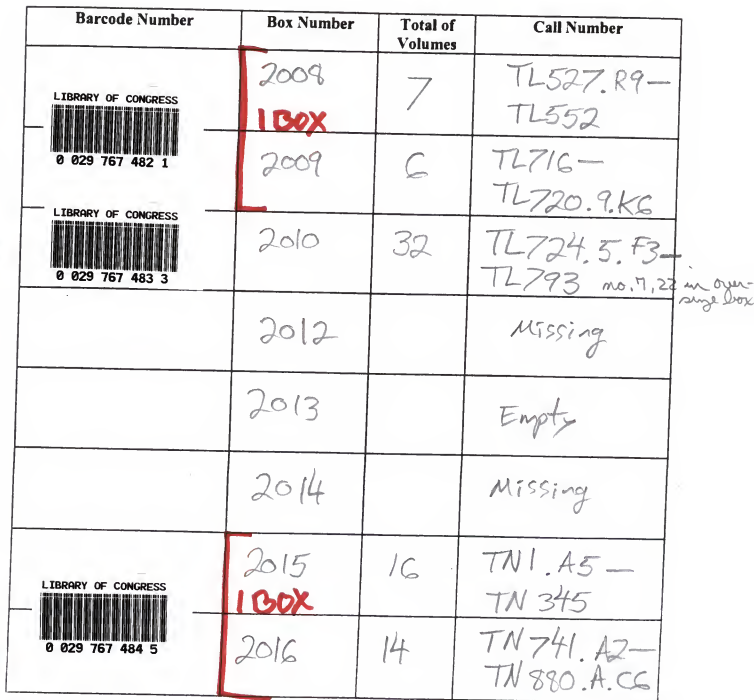 Barcode Number Box Number Total of Volumes Call Number
LIBRARY OF CONGRESS
0 029 767 482 1
2008 7 TL527.R9—
1 BOX TL552
2009 6 TL716—
TL720.9.K6
LIBRARY OF CONGRESS
0 029 767 483 3
2010 32 TL724.5.F3—
TL793 no. 7, 22 in over-
size box
2012 Missing
2013 Empty
2014 Missing
LIBRARY OF CONGRESS
0 029 767 484 5
2015 16 TN1.A5—
1 BOX TN 345
2016 14 TN 741.A2—
TN 880.A.C6